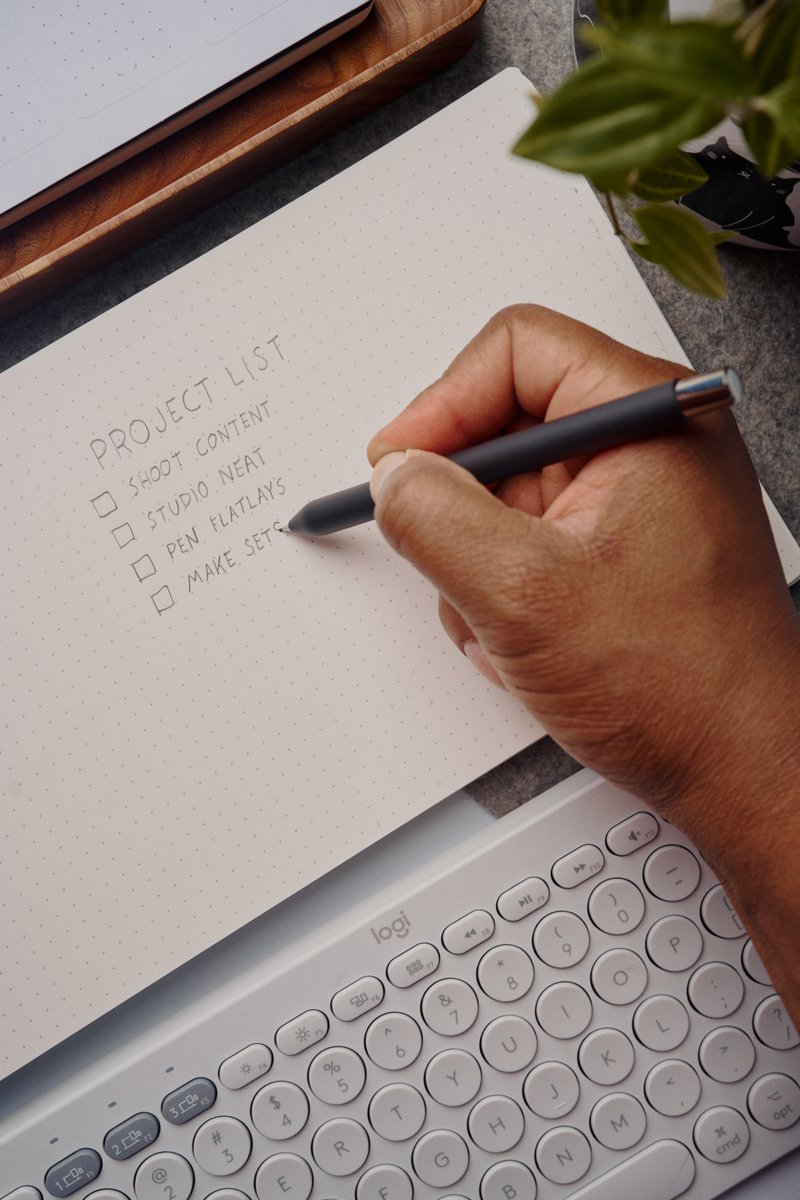 PROJECT LIST
SHOOT CONTENT
STUDIO NEAT
PEN FLATLAYS
MAKE SETS
logi
1 F1
2 F2
3 F3
F4
F5
F6
F7
F8
F9
F10
F11
@ 2
# 3
$ 4
% 5
^ 6
& 7
* 8
( 9
) 0
_ -
E
R
T
Y
U
I
O
P
F
G
H
J
K
L
: ;
B
N
M
< ,
> .
? /
⌘ cmd
⌥ opt